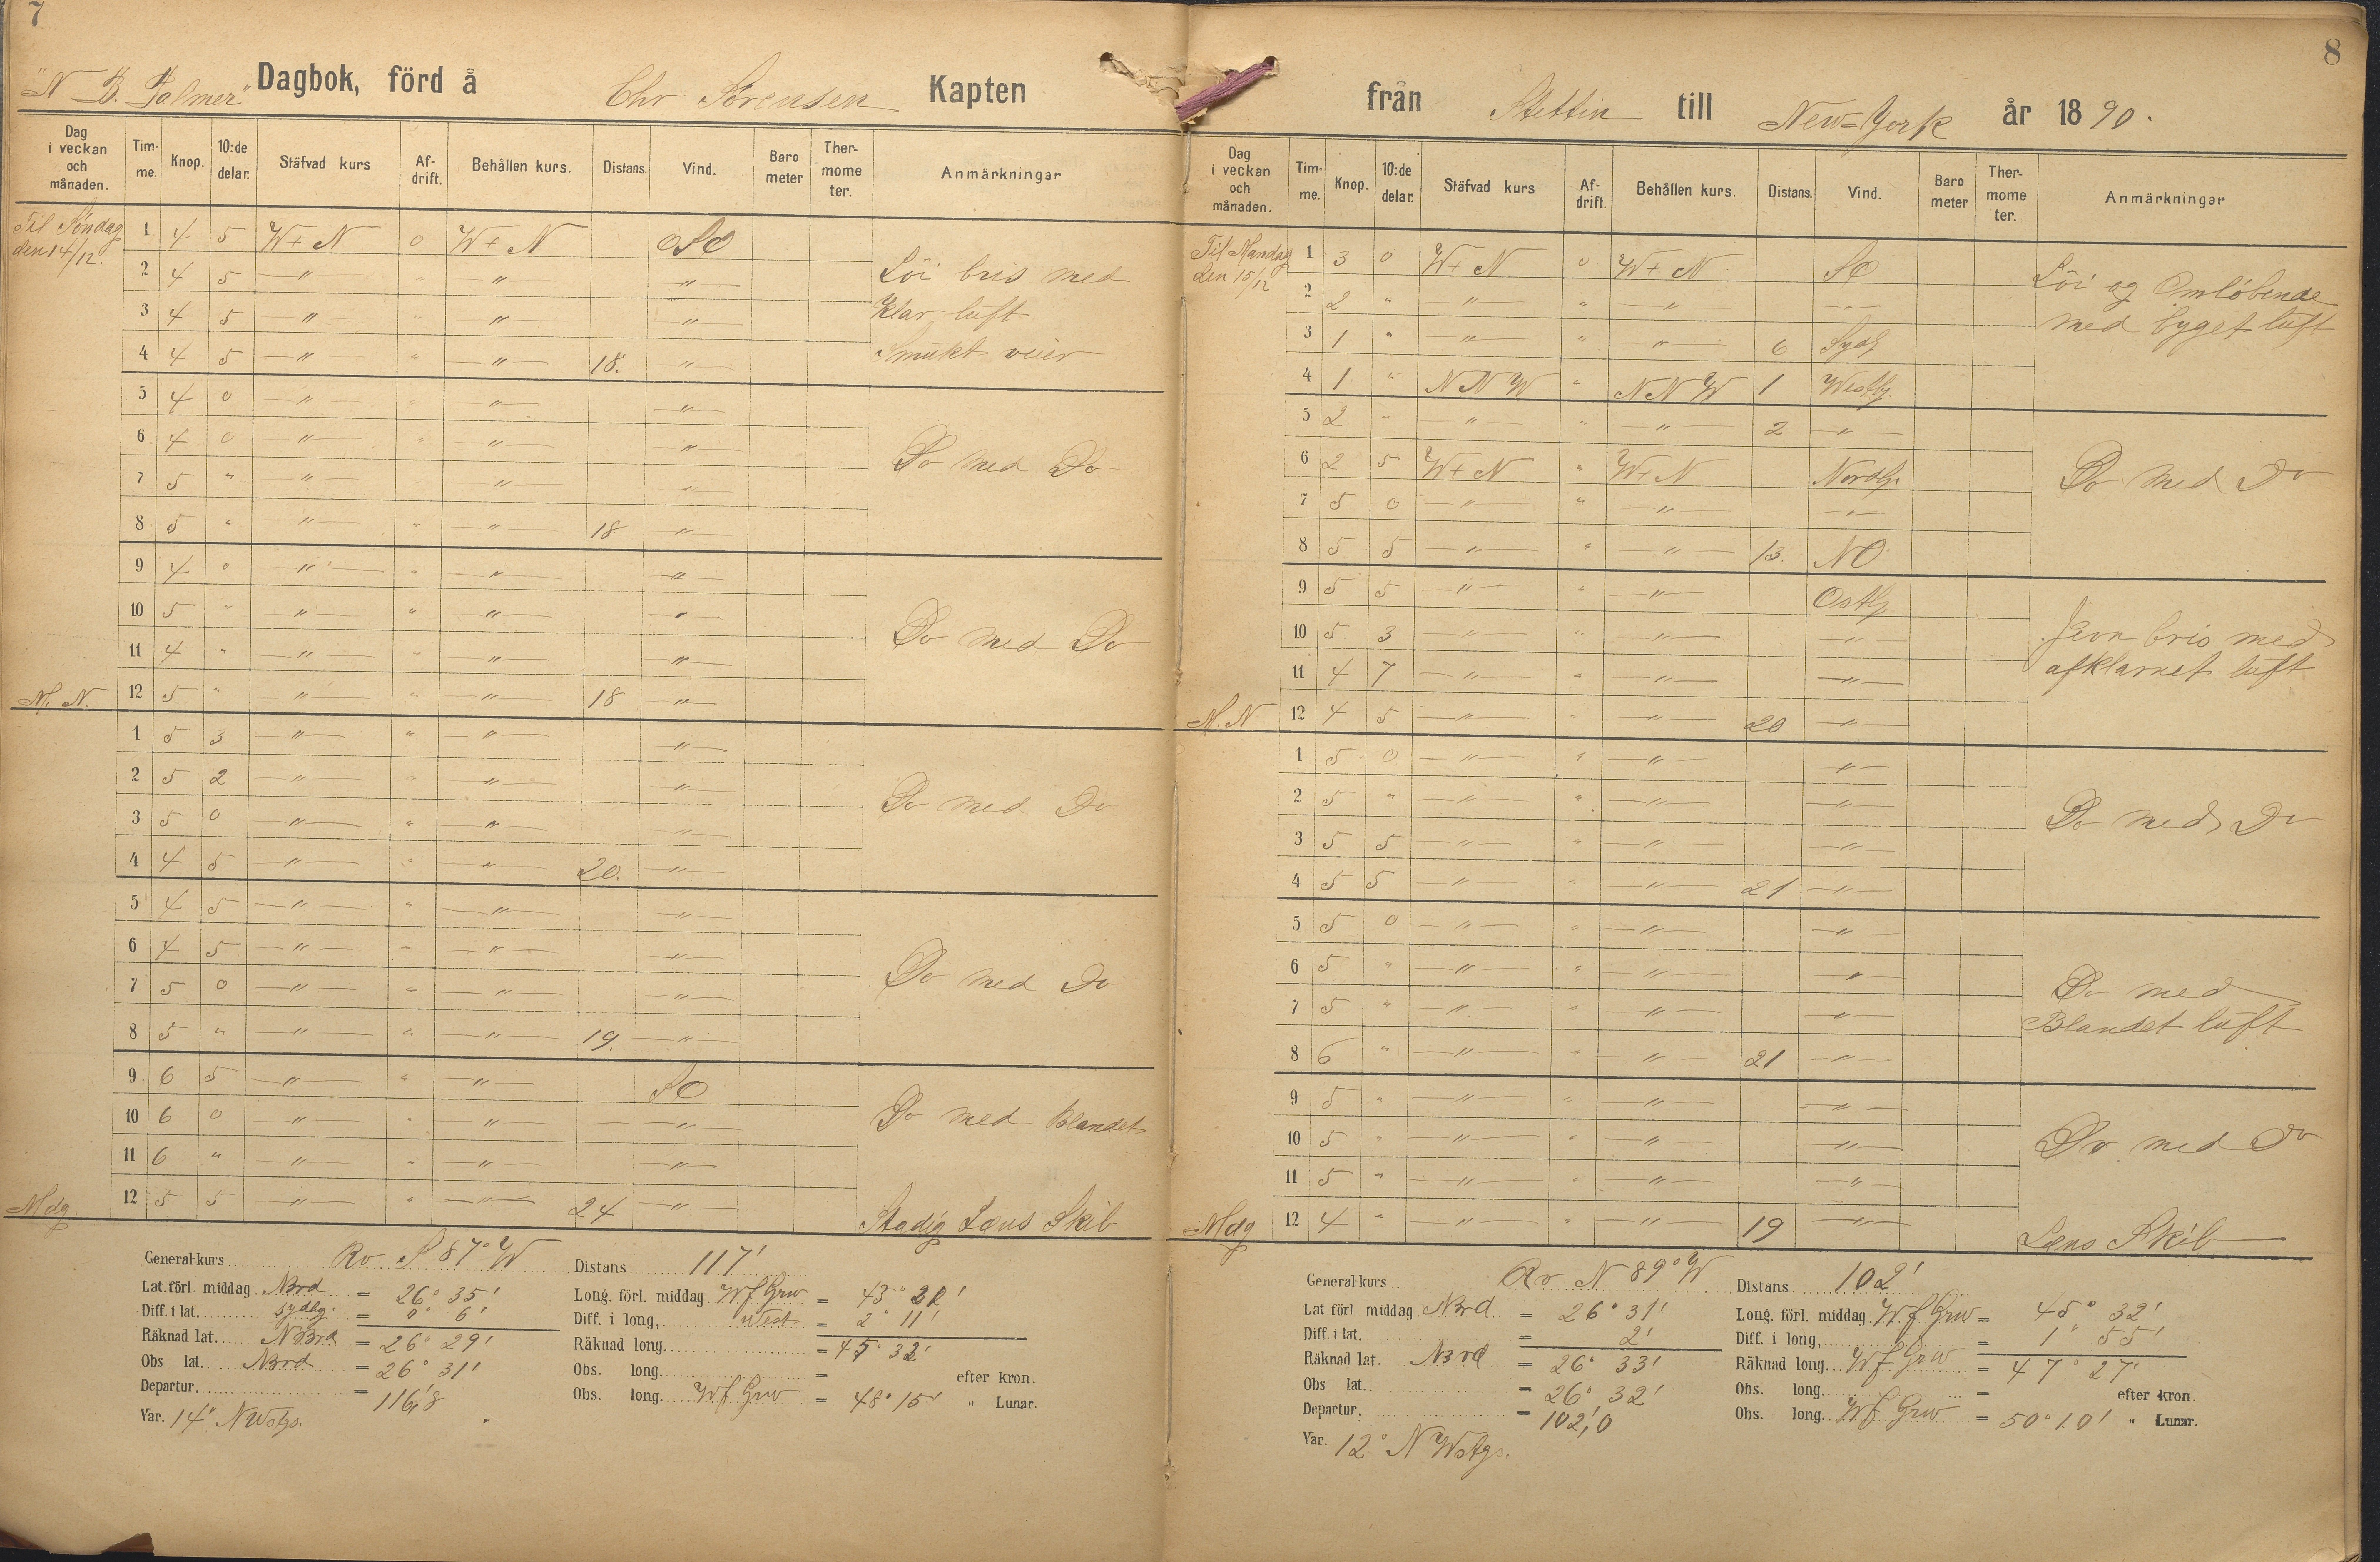 7
"N. B. Palmer" Dagbok, förd å Chr Sörensen Kapten
Dag i veckan och månaden. Tim-me. Knop. 10:de delar. Stäfvad kurs Af-drift. Behållen kurs. Distans. Vind. Baro meter Ther-mome ter. Anmärkningar
Til Söndag den 14/12. 1 4 5 W+N 0 W+N OSO
2 4 5 — " — " — " — — " — Löi bris med
3 4 5 — " — " — " — — " — Klar luft
4 4 5 — " — " — " — 18. — " — Smukt veier
5 4 0 — " — " — " — — " —
6 4 0 — " — " — " — — " — Do med Do
7 5 " — " — — " — — " —
8 5 " — " — " — " — 18 — " —
9 4 " — " — " — " — — " —
10 5 " — " — " — " — — " — Do med Do
11 4 " — " — " — " — — " —
M. N. 12 5 " — " — " — " — 18 — " —
1 5 3 — " — " — " — — " —
2 5 2 — " — " — " — — " — Do med Do
3 5 0 — " — " — " — — " —
4 4 5 — " — " — " — 20. — " —
5 4 5 — " — " — " — — " —
6 4 5 — " — " — " — — " — Do med Do
7 5 0 — " — " — " — — " —
8 5 " — " — " — " — 19. — " —
9 6 5 — " — " — " — SO
10 6 0 — " — " — " — — " — Do med Blandet
11 6 " — " — " — " — — " —
Mdg. 12 5 5 — " — " — " — 24 — " — Stadig Læns Skib
General-kurs Rv S 87° W Distans 117'
Lat. förl. middag Nord = 26° 35' Long. förl. middag W f Grw = 43° 21'
Diff. i lat. sydlg. = 0° 6' Diff. i long, West = 2° 11'
Räknad lat. Nord = 26° 29' Räknad long. = 45° 32'
Obs lat. Nord = 26° 31' Obs. long. = efter kron.
Departur. = 116,'8 Obs. long. W f Grw = 48° 15' " Lunar.
Var. 14° NWstgs.
8
från Stettin till New-York år 1890.
Dag i veckan och månaden. Tim-me. Knop. 10:de delar. Stäfvad kurs Af-drift. Behållen kurs. Distans. Vind. Baro meter Ther-mome ter. Anmärkningar
Til Mandag den 15/12 1 3 0 W+N 0 W+N SO
2 2 " — " — " — " — — " — Löi og Omlöbende
3 1 " — " — " — " — 6 Sydl med byget luft
4 1 " NNW " NNW 1 Westlg
5 2 " — " — " — " — 2 — " —
6 2 5 W+N " W+N Nordlg. Do med Do
7 5 0 — " — " — " — — " —
8 5 5 — " — " — " — 13. NO
9 5 5 — " — " — " — Ostlg
10 5 3 — " — " — " — — " — Jevn bris med
11 4 7 — " — " — " — — " — afklarnet luft
M. N 12 4 5 — " — " — " — 20 — " —
1 5 0 — " — " — " — — " —
2 5 " — " — " — " — — " — Do med Do
3 5 5 — " — " — " — — " —
4 5 5 — " — " — " — 21 — " —
5 5 0 — " — " — " — — " —
6 5 " — " — " — " — — " — Do med
7 5 " — " — " — " — — " — Blandet luft
8 6 " — " — " — " — 21 — " —
9 5 " — " — " — " — — " —
10 5 " — " — " — " — — " — Do med Do
11 5 " — " — " — " — — " —
Mdg 12 4 " — " — " — " — 19 — " — Læns Skib
General-kurs Rv N 89° W Distans 102'
Lat förl middag Nord = 26° 31' Long. förl. middag W f Grw = 45° 32'
Diff. i lat. = 2' Diff. i long, = 1° 55'
Räknad lat. Nord = 26° 33' Räknad long. W f Grw = 47° 27'
Obs lat. = 26° 32' Obs. long. = efter kron.
Departur. = 102,'0 Obs. long. W f Grw = 50° 10' " Lunar.
Var. 12° N Wstgs.